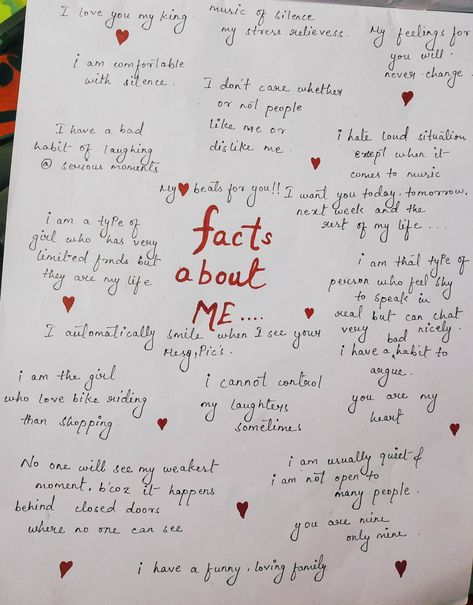 I love you my king.
music of silence
my stress relievess.
My feelings for
you will
never change
i am comfortable
with silence.
I don't care whether
or not people
like me or
dislike me.
I have a bad
habit of laughing
@ serious moments
i hate loud situation
except when it
comes to music
My ♥ beats for you!!
I want you today, tomorrow,
next week and the
rest of my life ...
i am a type of
girl who has very
limited frnds but
they are my life
facts
about
ME....
i am that type of
person who feel shy
to speak in
real but can chat
very nicely.
I automatically smile when I see your
Mesg, Pic's.
i have a bad habit to
argue.
i am the girl
who love bike riding
than shopping.
i cannot control
my laughters
sometimes
you are my
heart
No one will see my weakest
moment, b'coz it happens
behind closed doors
where no one can see
i am usually quiet &
i am not open to
many people.
you are mine
only mine.
i have a funny, loving family